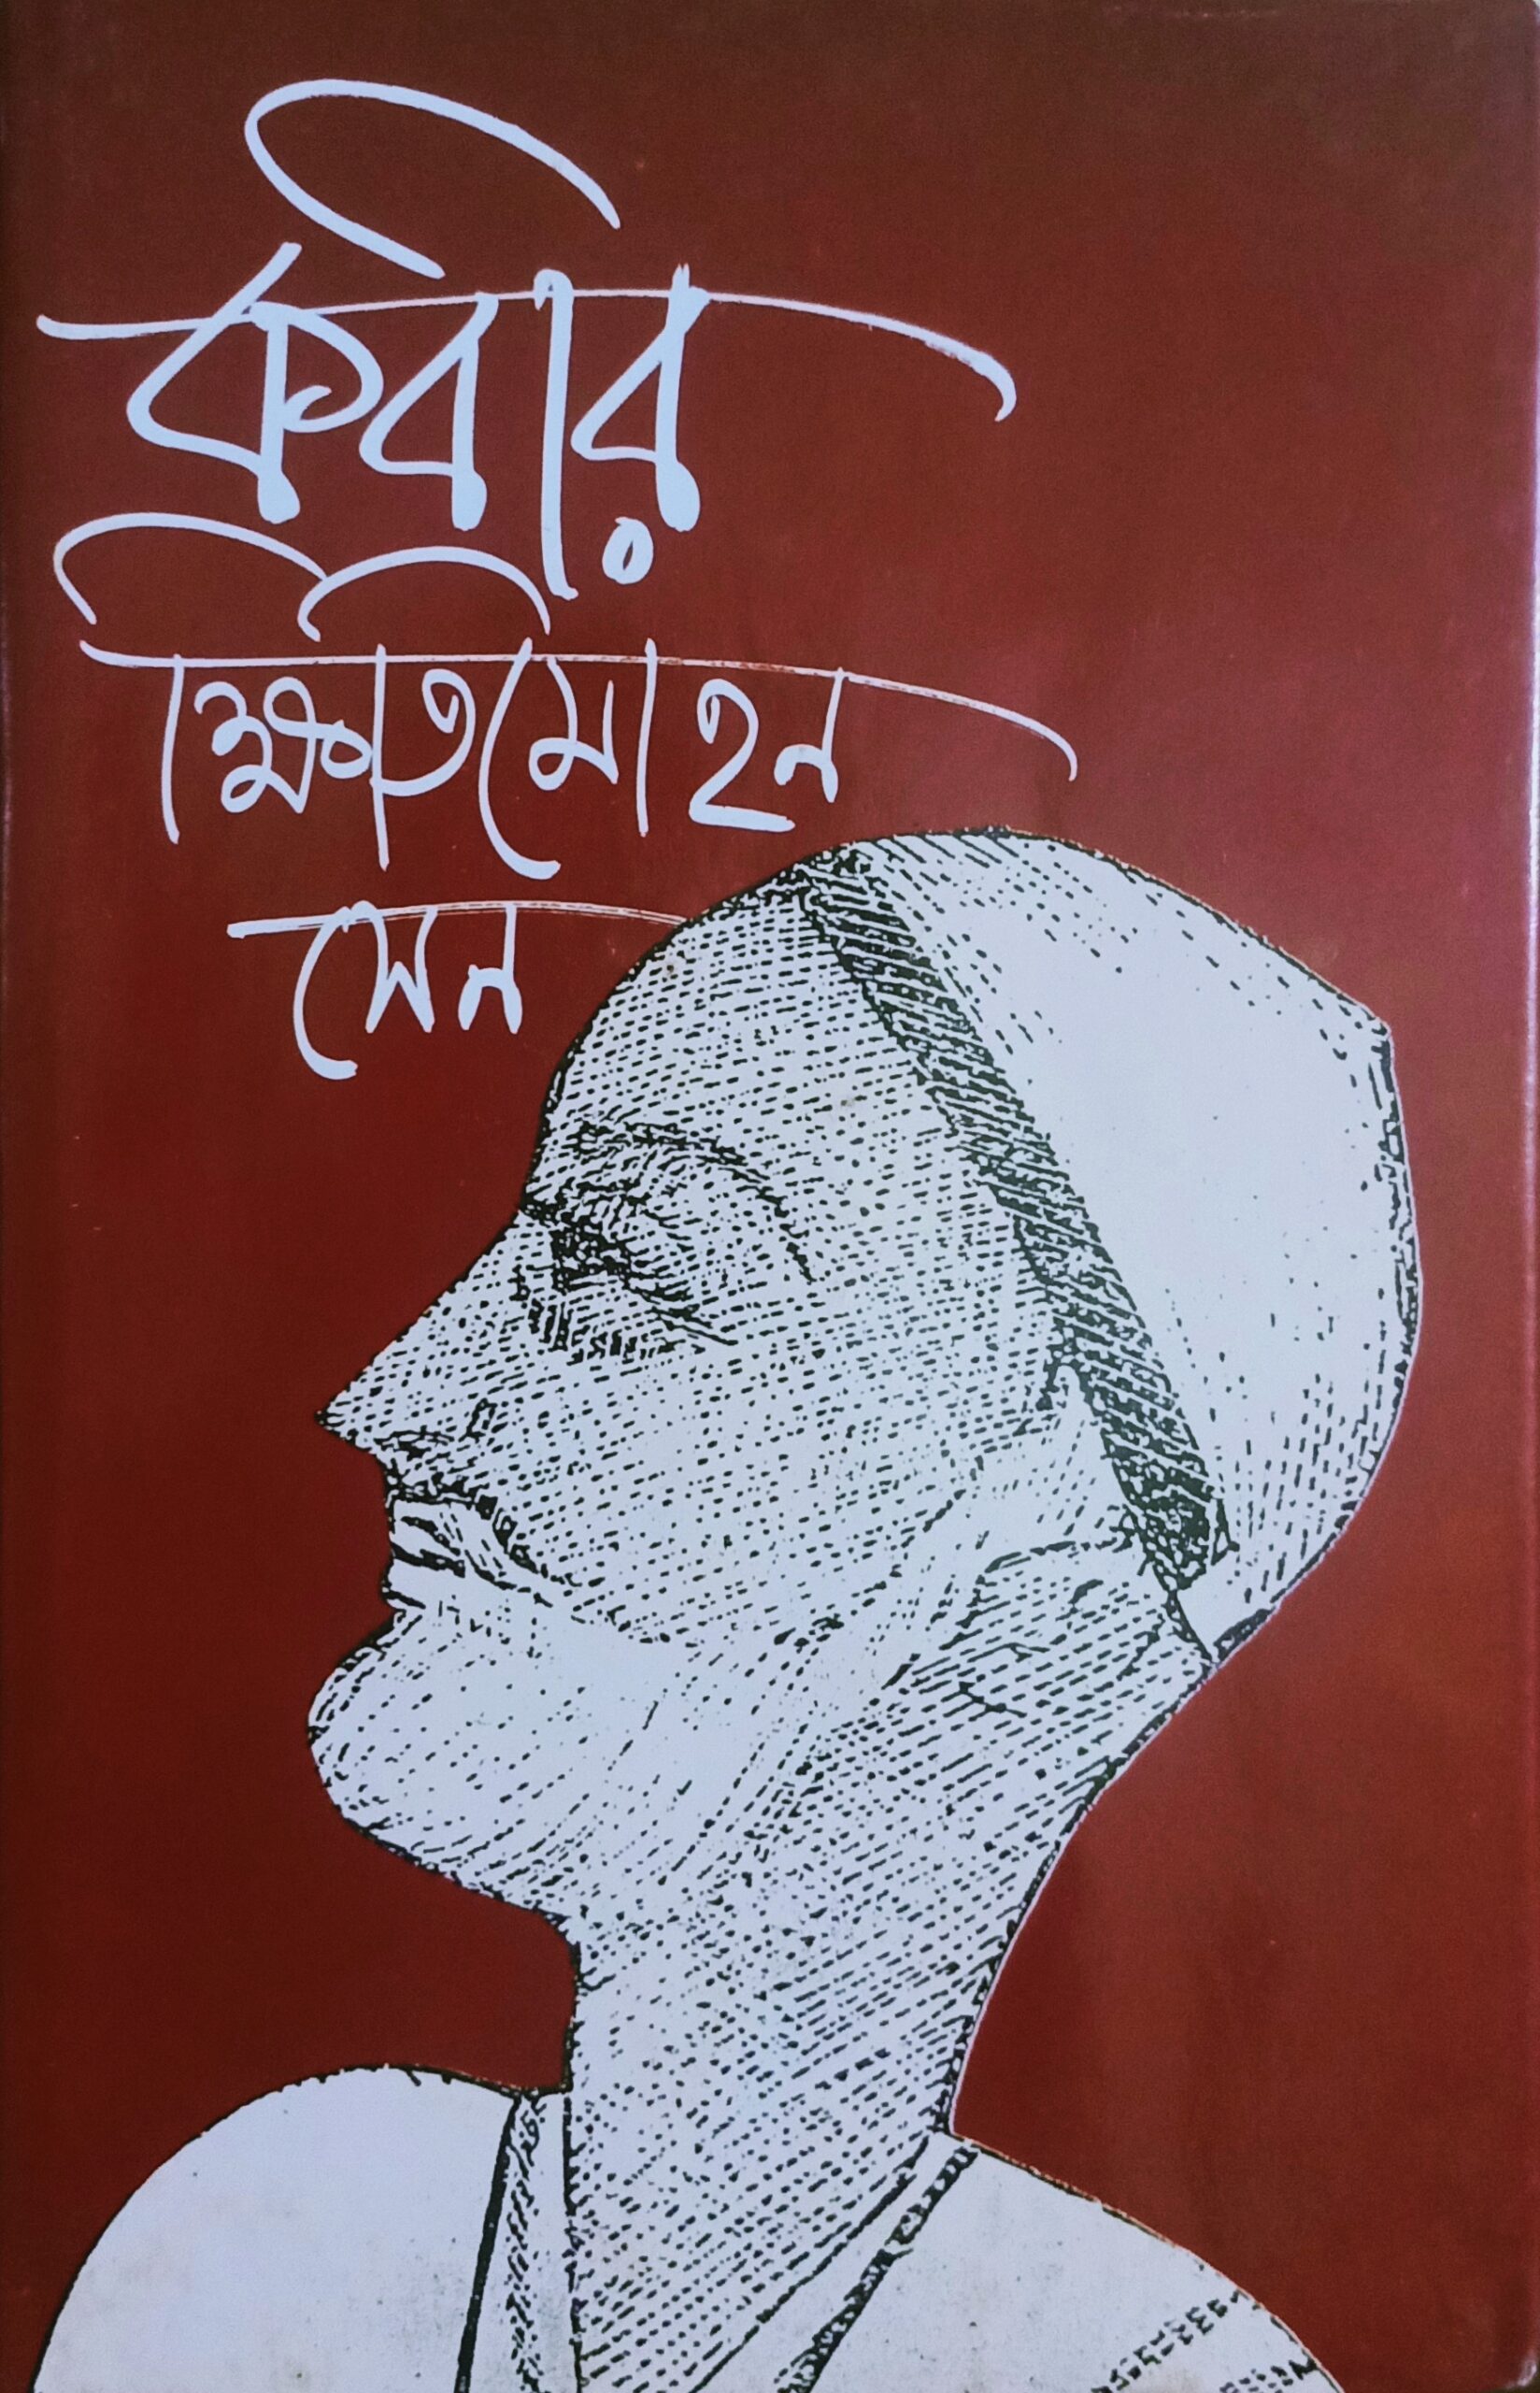 কবীর
ক্ষিতিমোহন
সেন